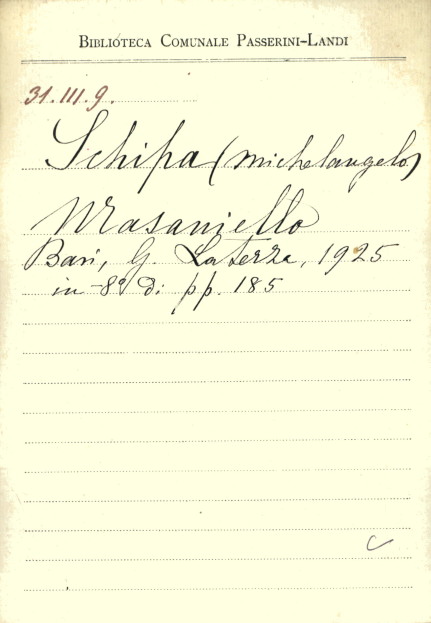 BIBLIOTECA COMUNALE PASSERINI-LANDI
31.III.9.
Schipa (Michelangelo)
Masaniello
Bari, G. Laterza, 1925
in-8º di pp. 185
C